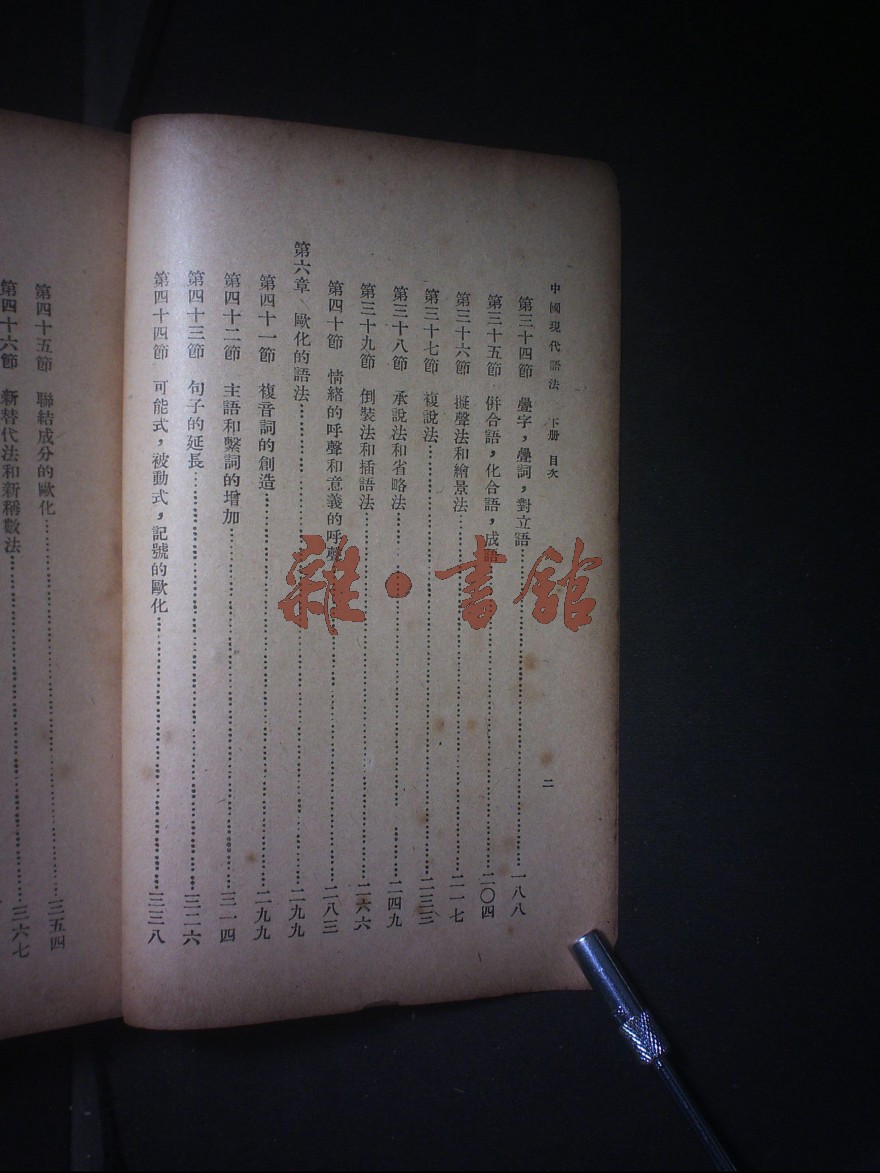 中國現代語法　下册　目次
第三十四節　疊字，疊詞，對立語……一八八
第三十五節　倂合語，化合語，成語……二〇四
第三十六節　擬聲法和繪景法……二一七
第三十七節　複說法……二三三
第三十八節　承說法和省略法……二四九
第三十九節　倒裝法和插語法……二六六
第四十節　情緒的呼聲和意義的呼聲……二八三
第六章　歐化的語法……二九九
第四十一節　複音詞的創造……二九九
第四十二節　主語和繫詞的增加……三一四
第四十三節　句子的延長……三二六
第四十四節　可能式，被動式，記號的歐化……三三八
二
第四十五節　聯結成分的歐化……三五四
第四十六節　新替代法和新稱數法……三六七
雜·書館